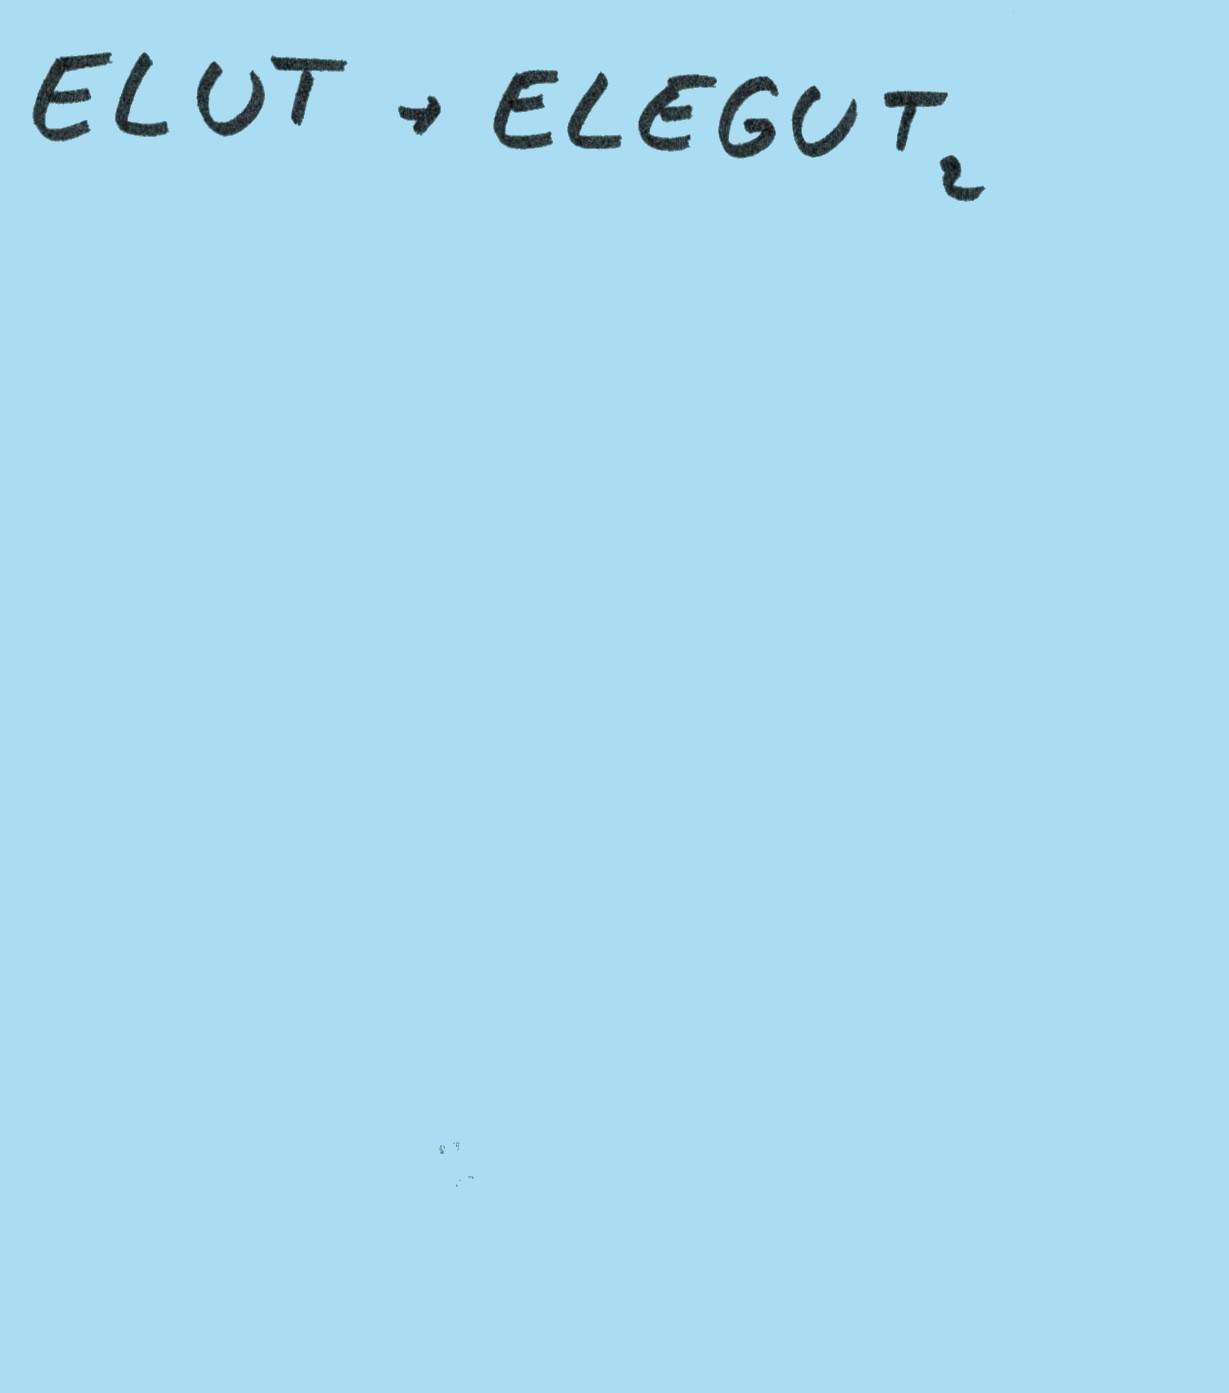 ELUT → ELEGUT₂